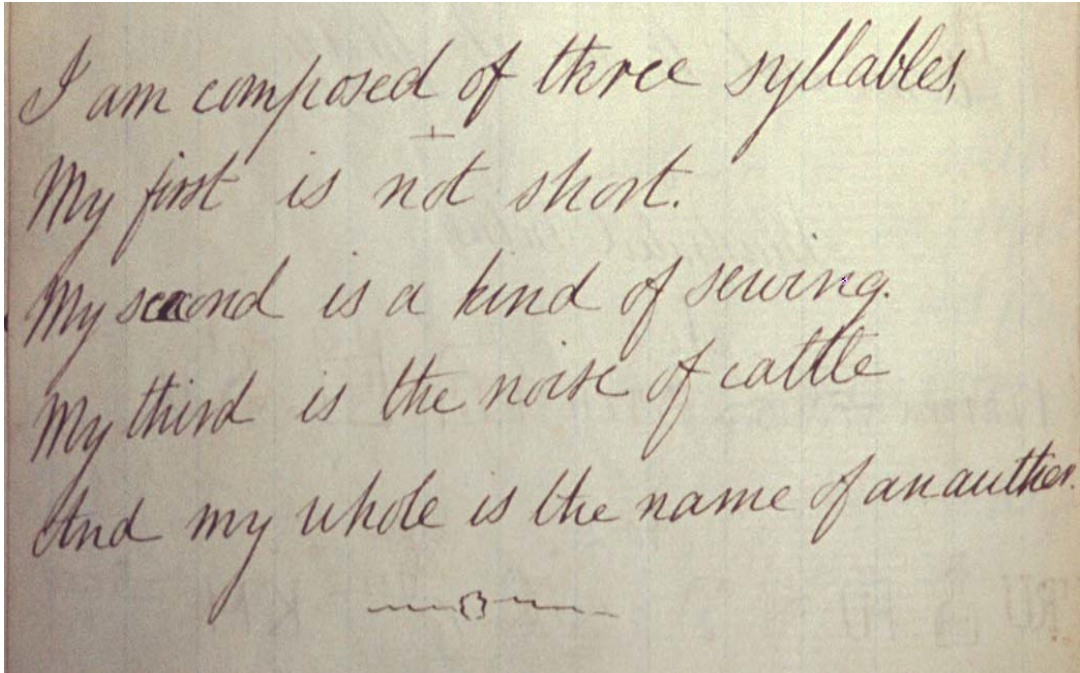 I am composed of three syllables,
My first is not short.
My second is a kind of sewing.
My third is the noise of cattle
And my whole is the name of an author.